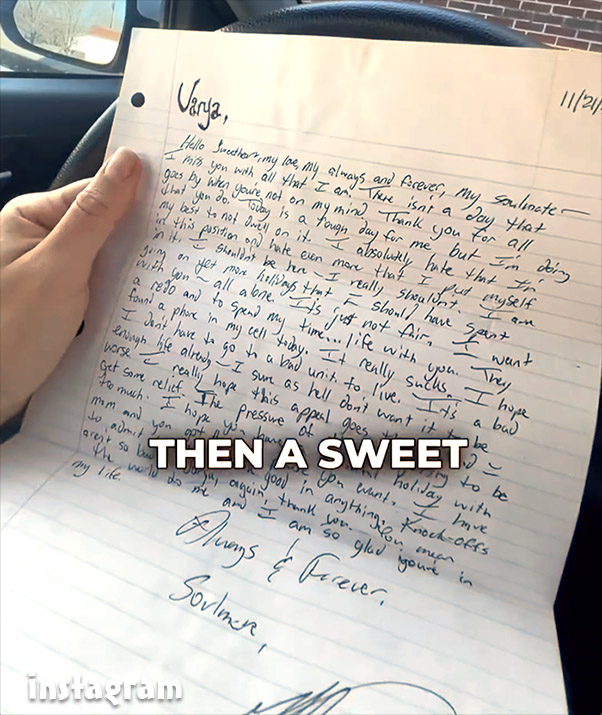 11/21/
Varya,
Hello Sweetheart, my love, my always and forever, my soulmate—
I miss you with all that I am. There isn't a day that
goes by when you're not on my mind. Thank you for all
that you do. Today is a tough day for me but I'm doing
my best to not dwell on it. I absolutely hate that I'm
in this position and hate even more that I put myself
in it. I shouldn't be here – I really shouldn't. I am
going on yet more holidays that I should have spent
with you – all alone. It's just not fair. I want
a redo and to spend my time... life with you. They
found a phone in my cell today. It really sucks. I hope
I don't have to go to a bad unit to live. It's a bad
enough life already – I sure as hell don't want it to be
worse. I really hope this appeal goes
get some relief. The pressure of to be
too much. I hope you have holiday with
mom and you got you want. I have
to admit good in anything. Knock-offs
aren't so bad again, thank you. You mean
the world to me and I am so glad you're in
my life.
THEN A SWEET
Always & Forever,
Soulmate,
instagram